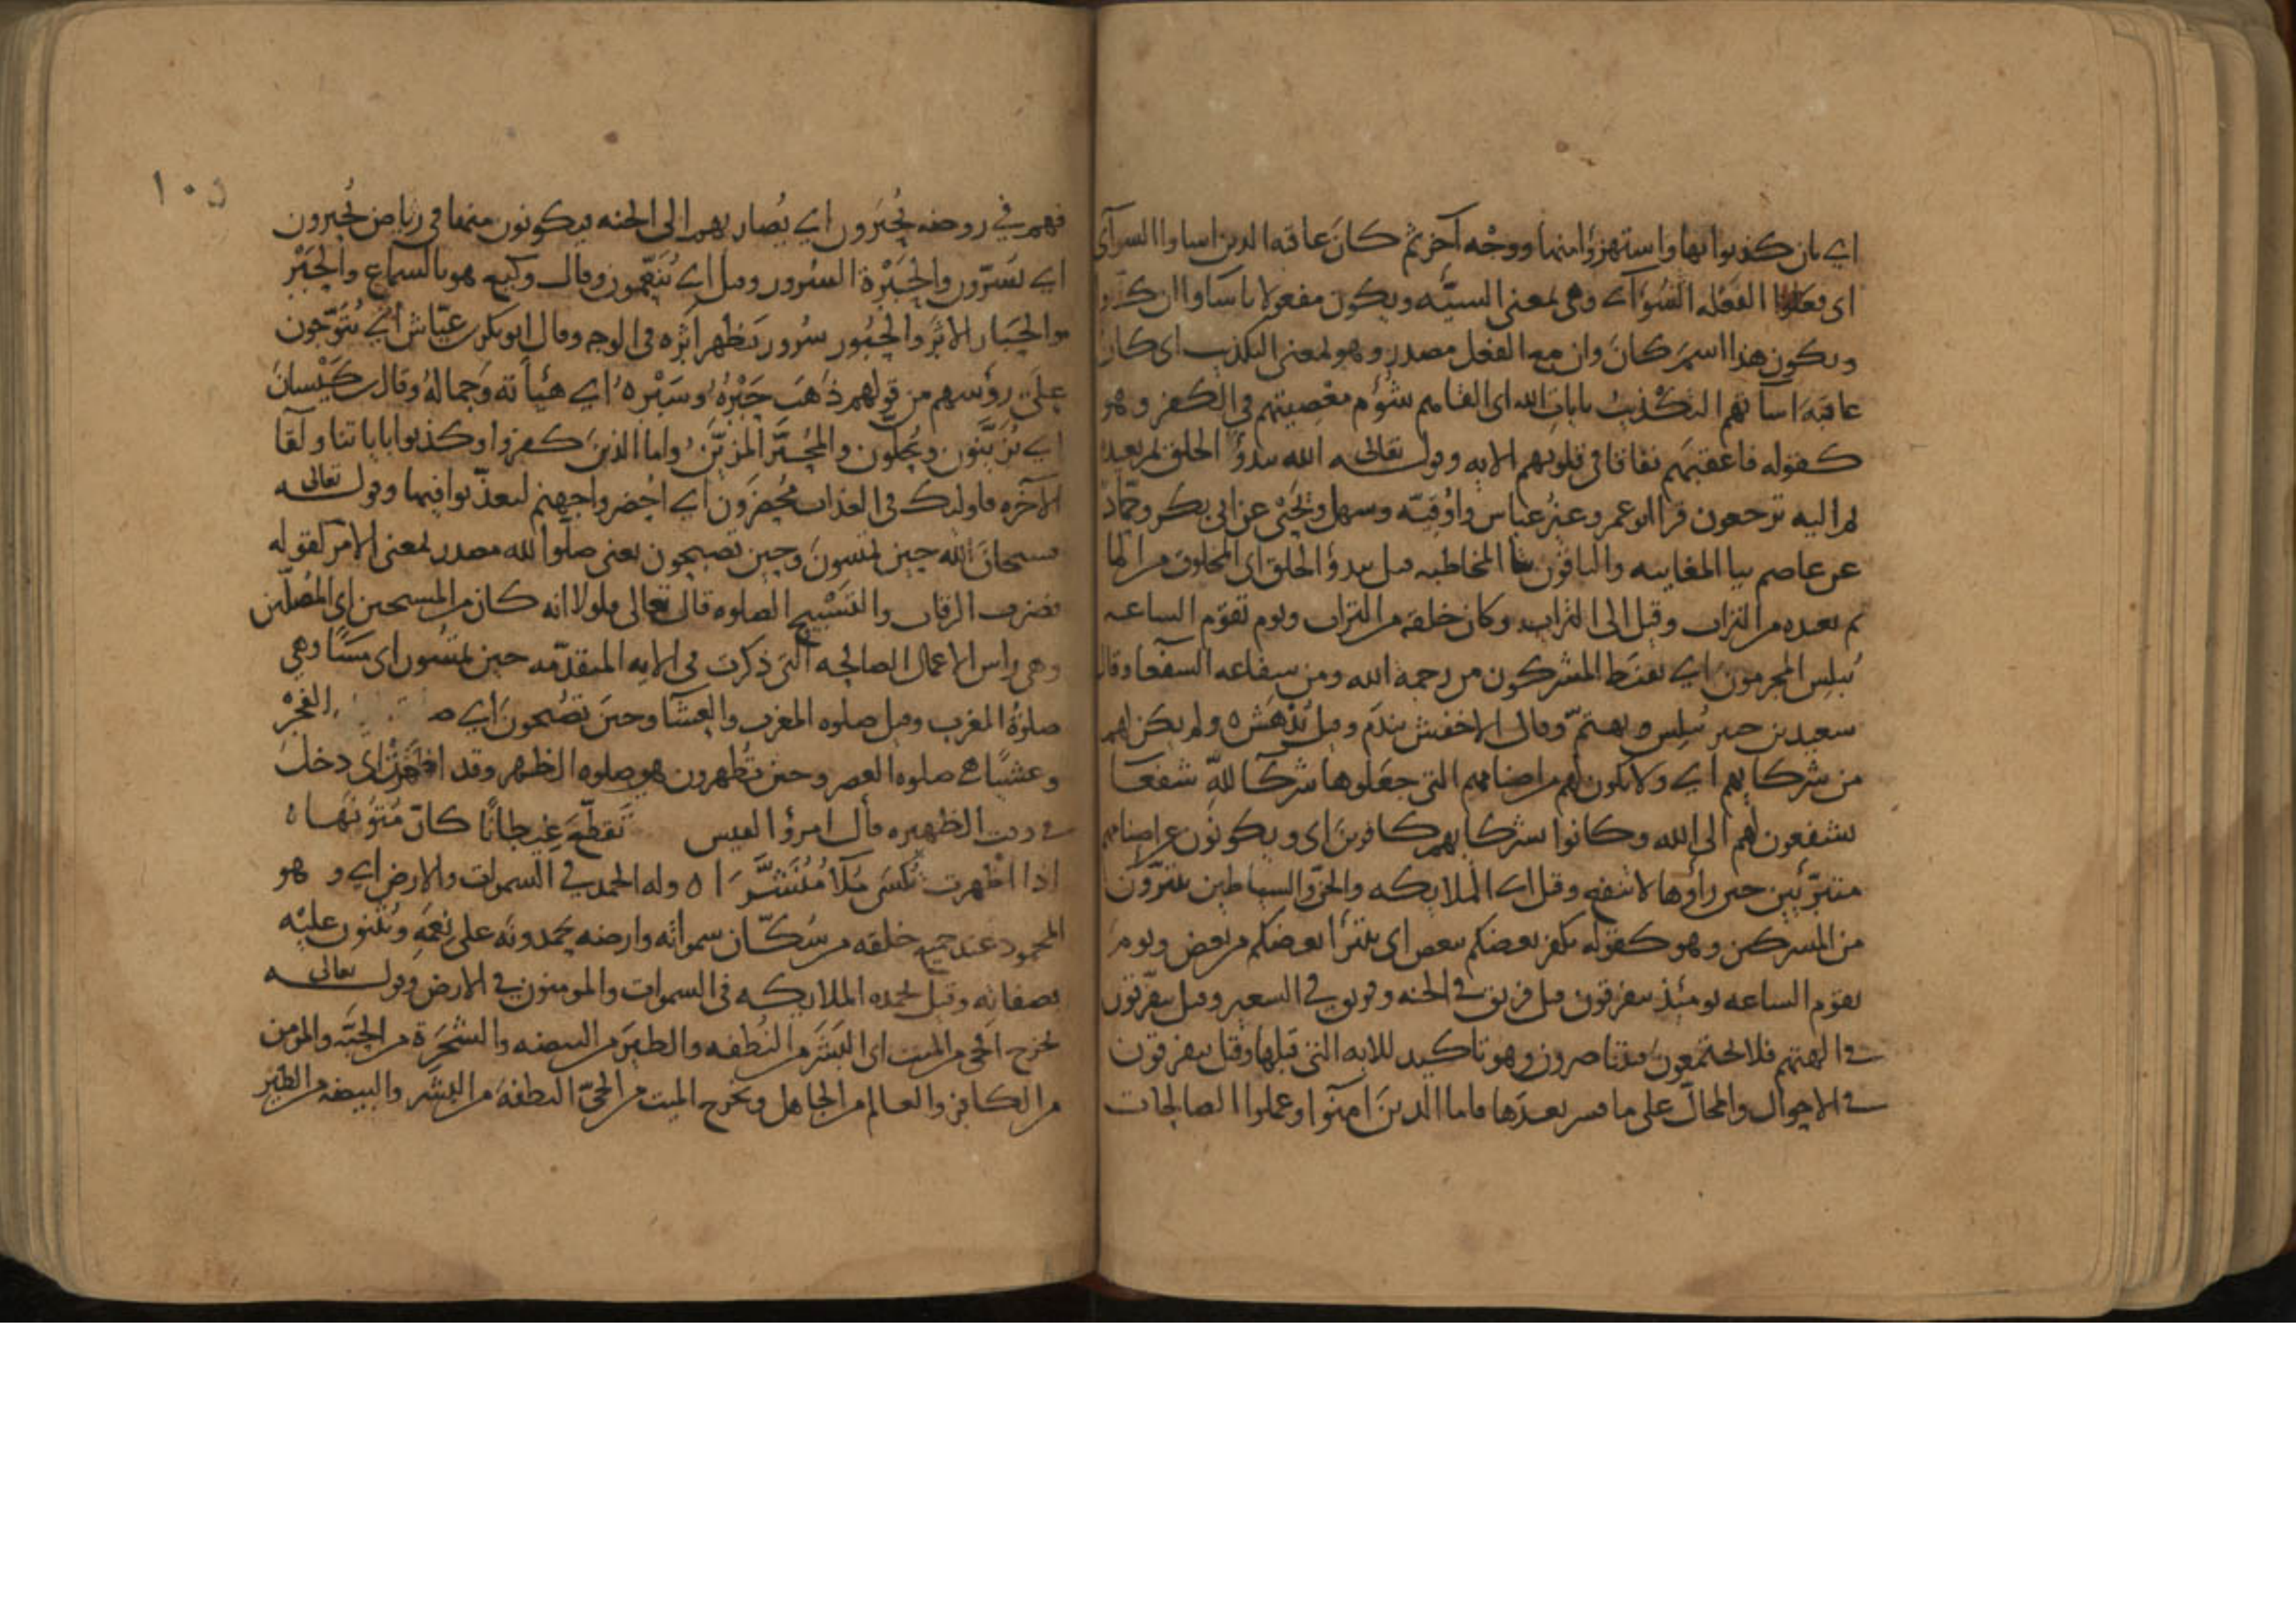 اي بان كذبوا بها واستهزؤا منها ووجه آخر ثم كان عاقبة الذين اساوا السوآى
اى فعلوا الفعله السوآى وهى بمعنى السيئه ويكون مفعولا باساوا ان كذبوا
ويكون هذا اسم كان وان مع الفعل مصدر وهو بمعنى التكذيب اى كان
عاقبة اساتهم التكذيب بايات الله اى القاهم شؤم معصيتهم في الكفر وهو
كقوله فاعقبهم نفاقا في قلوبهم الايه وقوله تعالى الله يبدؤ الخلق ثم يعيده
ثم اليه ترجعون قرا ابو عمرو غير عباس واوقيه وسهل ويحيى عن ابي بكر وحماد
عن عاصم بيا المغايبه والباقون بتا المخاطبه قيل يبدؤ الخلق اى المخلوق من الما
ثم يعيده من التراب وقيل الى التراب وكان خلقه من التراب ويوم تقوم الساعه
يبلس المجرمون اي يقنط المشركون من رحمة الله ومن شفاعه الشفعا وقال
سعيد بن جبير يبلس يهتم وقال الاخفش يندم وقيل يدهش ه ولم يكن لهم
من شركايهم اي ولا يكون لهم من اصنامهم التي جعلوها شركا لله شفعا
يشفعون لهم الى الله وكانوا بشركايهم كافرين اى ويكونون عن اصنامهم
متبرئين حين راؤها لا تشفع وقيل اى الملايكه والجن والشياطين يتبرؤن
من المشركين وهو كقوله يكفر بعضكم ببعض اى يتبرأ بعضكم من بعض ويوم
تقوم الساعه يومئذ يتفرقون قيل فريق في الجنه وفريق في السعير وقيل يتفرقون
في الهتهم فلا يجتمعون متناصرون وهو تاكيد للايه التي قبلها وقيل يتفرقون
في الاحوال والمحال على ما فسر بعدها فاما الذين امنوا وعملوا الصالحات
١٠٥
فهم في روضه يحبرون اي يصار بهم الى الجنه فيكونون منها في رياض يحبرون
اي يسرون والحبرة السرور وقيل اي ينعمون وقال وكيع هو بالسماع والحبر
والحبار الاثر والحبور سرور يظهر اثره في الوجه وقال ابو بكر عياش اي يتوجون
على رؤسهم من قولهم ذهب حبره وسبره اي هيأته وجماله وقال كيسان
اي يزينون ويحلون والمحبر المزين واما الذين كفروا وكذبوا باياتنا ولقا
الآخره فاولئك في العذاب محضرون اي احضروا جهنم ليعذبوا فيها وقوله تعالى
فسبحان الله حين تمسون وحين تصبحون يعني صلوا لله مصدر بمعنى الامر كقوله
فضرب الرقاب والتسبيح الصلوه قال تعالى فلولا انه كان من المسبحين اى المصلين
وهي راس الاعمال الصالحه التي ذكرت في الايه المتقدمه حين تمسون اى مسا وهي
صلوة المغرب وقيل صلوه المغرب والعشا وحين تصبحون اي ص الفجر
وعشيا هي صلوه العصر وحين تظهرون هو صلوه الظهر وقد اظهرت اى دخلت
في وقت الظهيره قال امرؤ القيس تقطع غيطانا كان متونها ه
اذا اظهرت تكسى ملآ منشرا ه وله الحمد في السموات والارض اي وهو
المحمود عند جميع خلقه من سكان سمواته وارضه يحمدونه على نعمه ويثنون عليه
بصفاته وقيل يحمده الملايكه في السموات والمومنون في الارض وقوله تعالى
يخرج الحي من الميت اى البشر من النطفه والطير من البيضه والشجرة من الحبه والمؤمن
من الكافر والعالم من الجاهل ويخرج الميت من الحي النطفة من البشر والبيضه من الطير